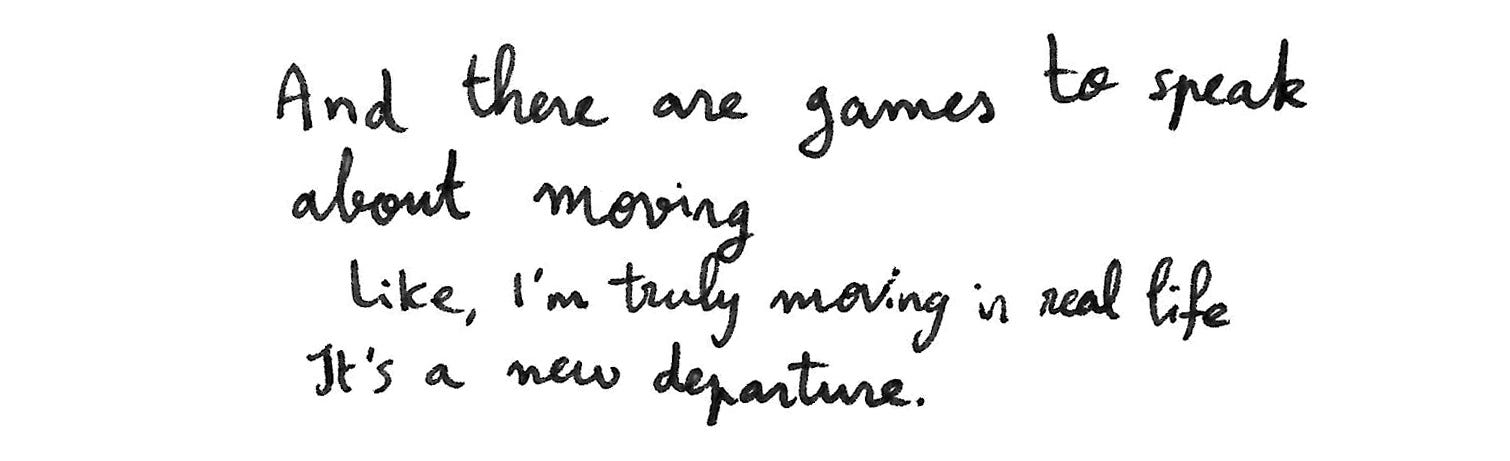 And there are games to speak
about moving
Like, I'm truly moving in real life
It's a new departure.